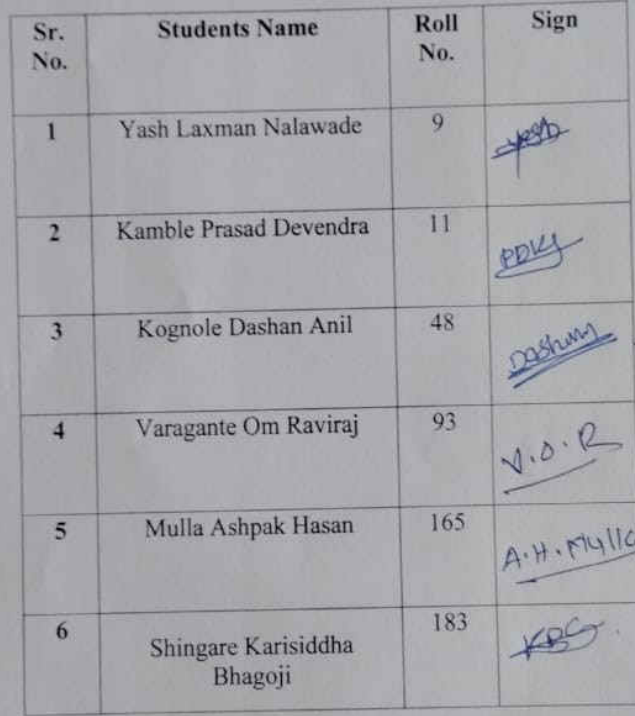 Sr. No. Students Name Roll No. Sign
1 Yash Laxman Nalawade 9 Yash
2 Kamble Prasad Devendra 11
3 Kognole Dashan Anil 48 Dashan
4 Varagante Om Raviraj 93 V.O.R
5 Mulla Ashpak Hasan 165 A.H.Mulla
6 Shingare Karisiddha Bhagoji 183